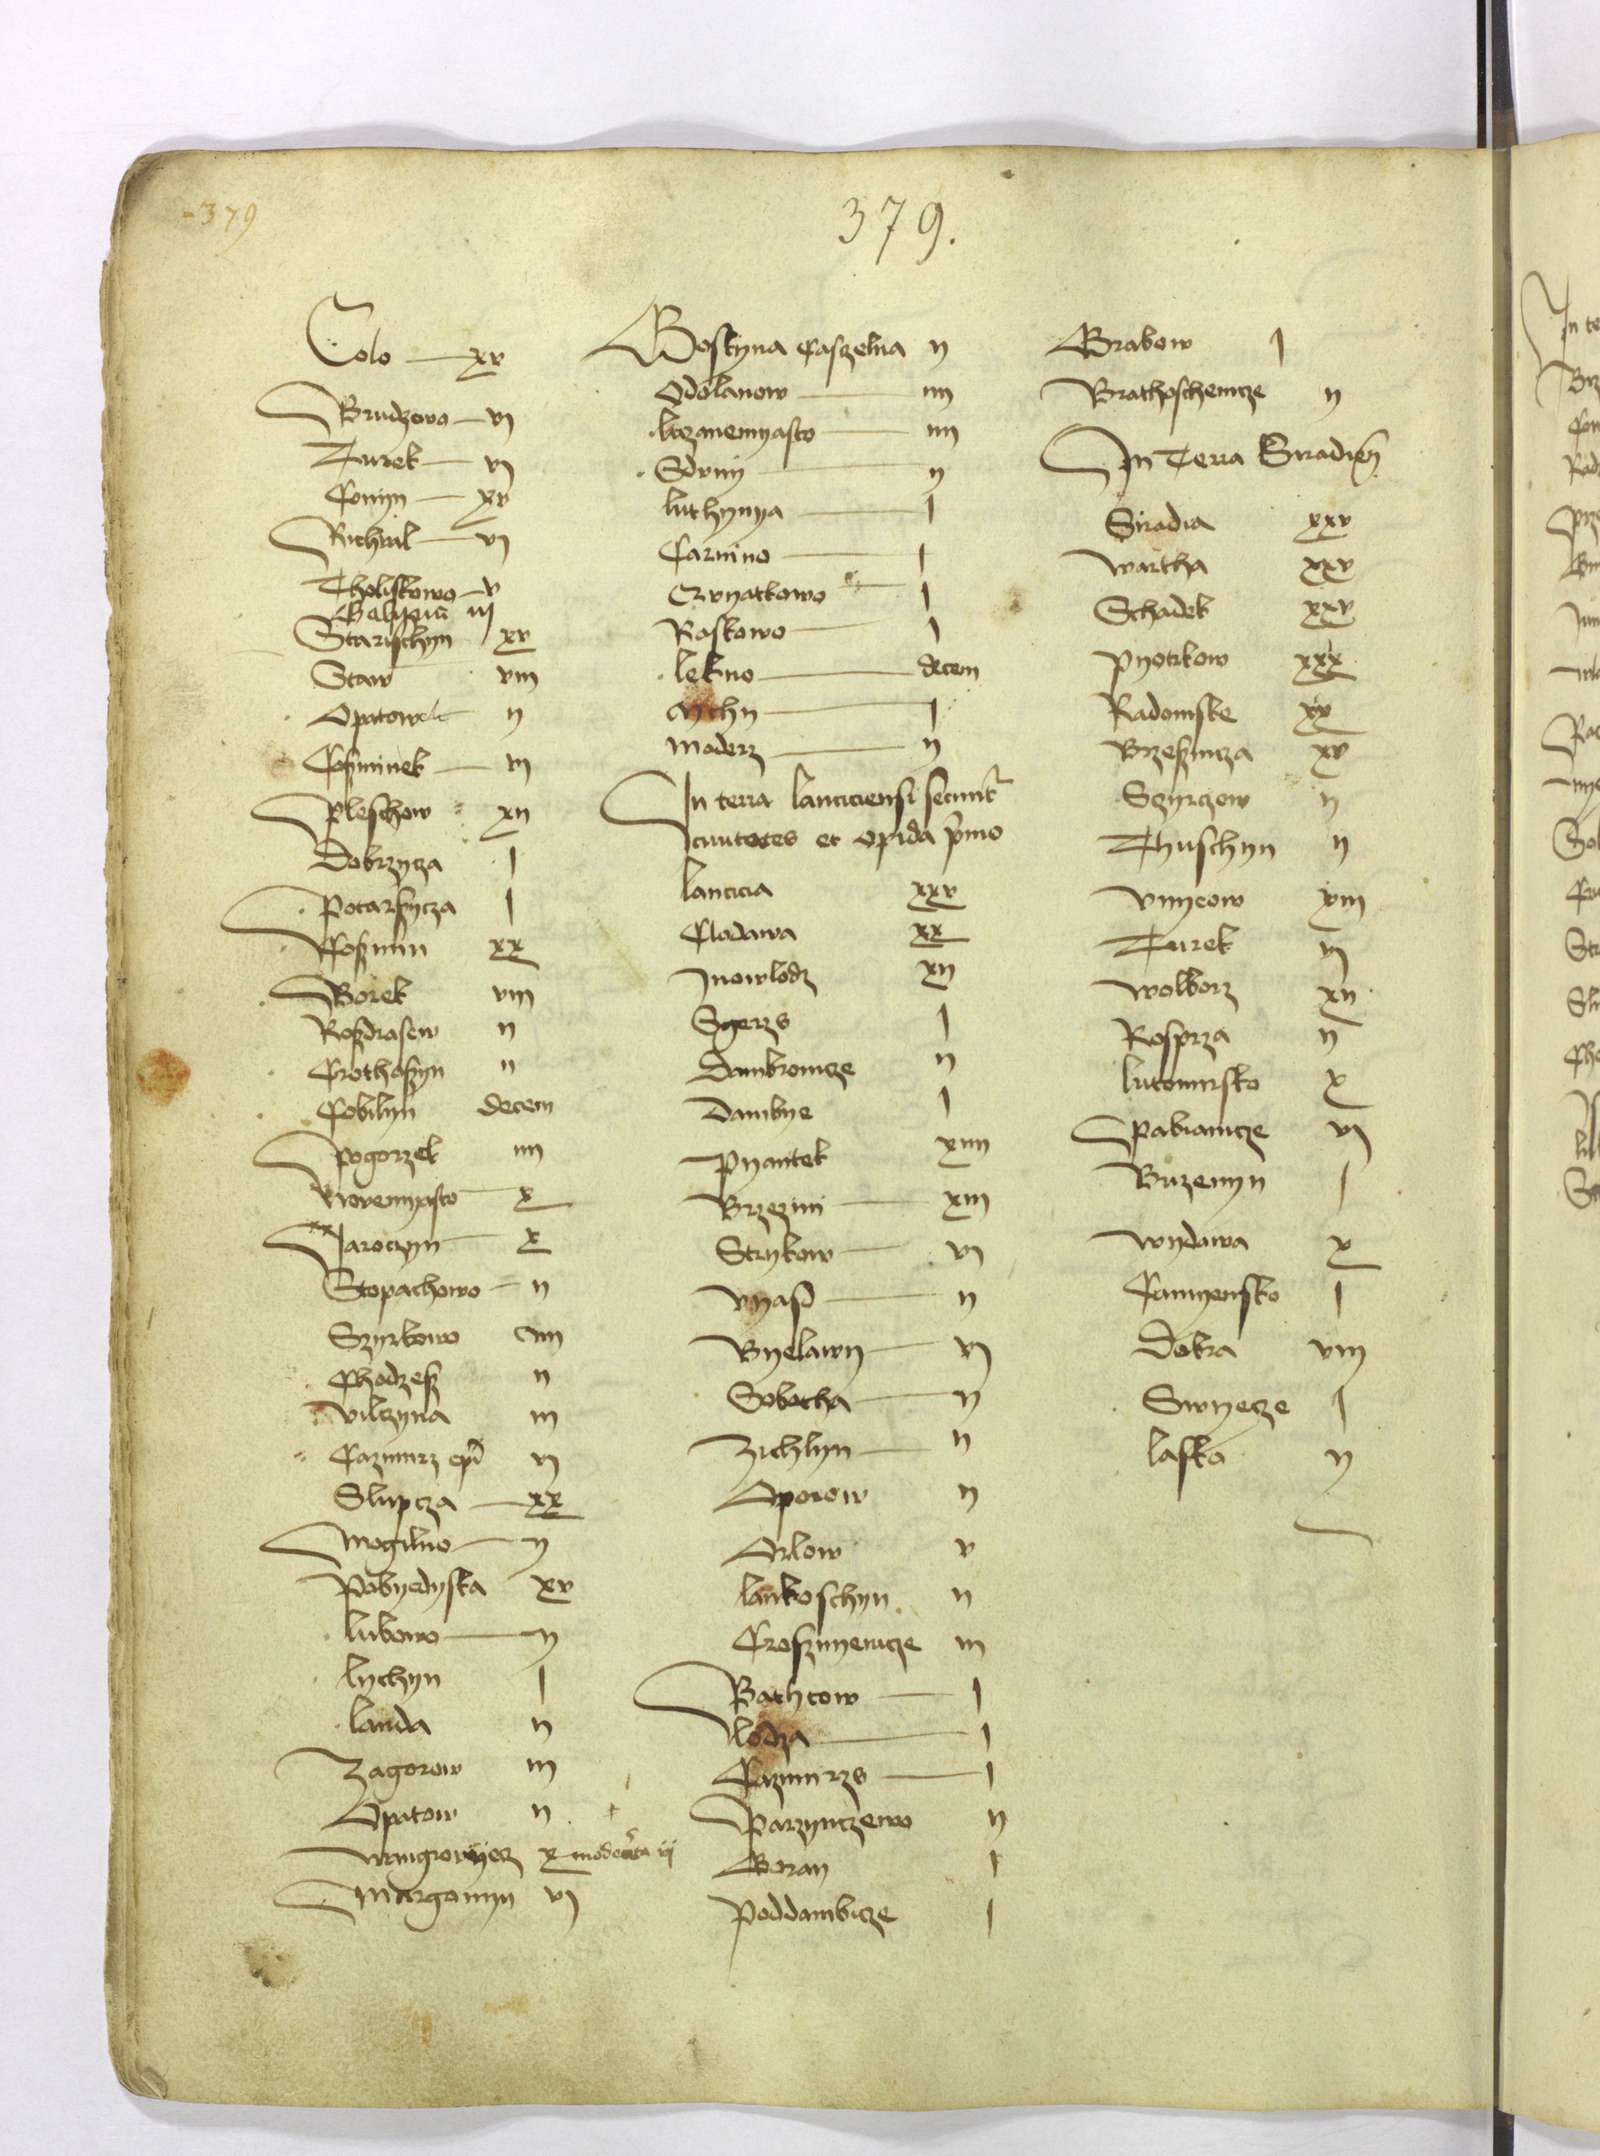 379
379.
Colo xv
Brudzewo vj
Turek vj
Conyn xv
Richwal vj
Tholiskowo v
Golyna iij
Stawischyn xv
Staw viij
Opatowek ij
Cosminek vj
Pleschow xij
Dobrzycza j
Potarzycza j
Cosmin xx
Borek viij
Rosdrasew ij
Crothosyn ij
Cobilyn decem
Pogorzel iiij
Novemyasto x
Jaroczyn x
Stopachowo ij
Szyrkowo
Chodzesz ij
Vilczyna iij
Cazimirz epi vj
Slupcza xx
Mogilno ij
Pobyedyska xv
Lubowo ij
Lychyn j
Landa ij
Zagorow iij
Opatow ij
Wangrowyecz x moderata ij
Margonyn vj
Gostyna Caszelna ij
Odolanow iiij
Lyczanemyasto iiij
Sdvny ij
Luthynya j
Carmino j
Czvyatkowo j
Raskowo j
Lekno decem
j
Moderz ij
In terra Lanciciensi secuntur
civitates et opida primo
Lancicia xxv
Clodawa xx
Inowlodz xij
Sgerzs j
Dambrowicze ij
Dambye j
Pyantek xiiij
Brzezini xiij
Strykow vj
Vyasd ij
Byelawy vj
Sobotha ij
Zichlyn ij
Oporow ij
Orlow v
Lankoschyn ij
Crosznyewicze iij
Bathcow j
Lodza j
Cazimirzs j
Parzynczewo ij
Goran j
Poddambicze j
Grabow j
Brathoschewicze ij
In Terra Siradien
Siradia xxv
Wartha xxv
Schadek xxv
Pyotrkow xxx
Radomske xx
Brzesznicza xv
Szyrczow ij
Thuschyn ij
Vnyeow xiij
Turek iij
Wolborz xij
Rosprza ij
Lutomirsko x
Pabianicze vj
Buzenyn j
Wydawa x
Camyensko j
Dobra viij
Swyecze j
Lasko ij